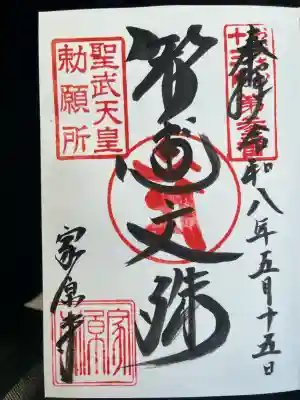 奉拝
令和八年五月十五日
智恵文殊
聖武天皇
勅願所
家原寺